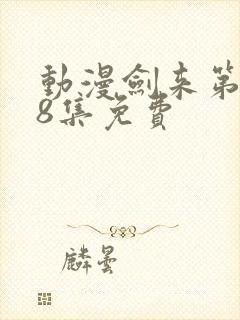 動漫劍来第
8集免費
麟曇